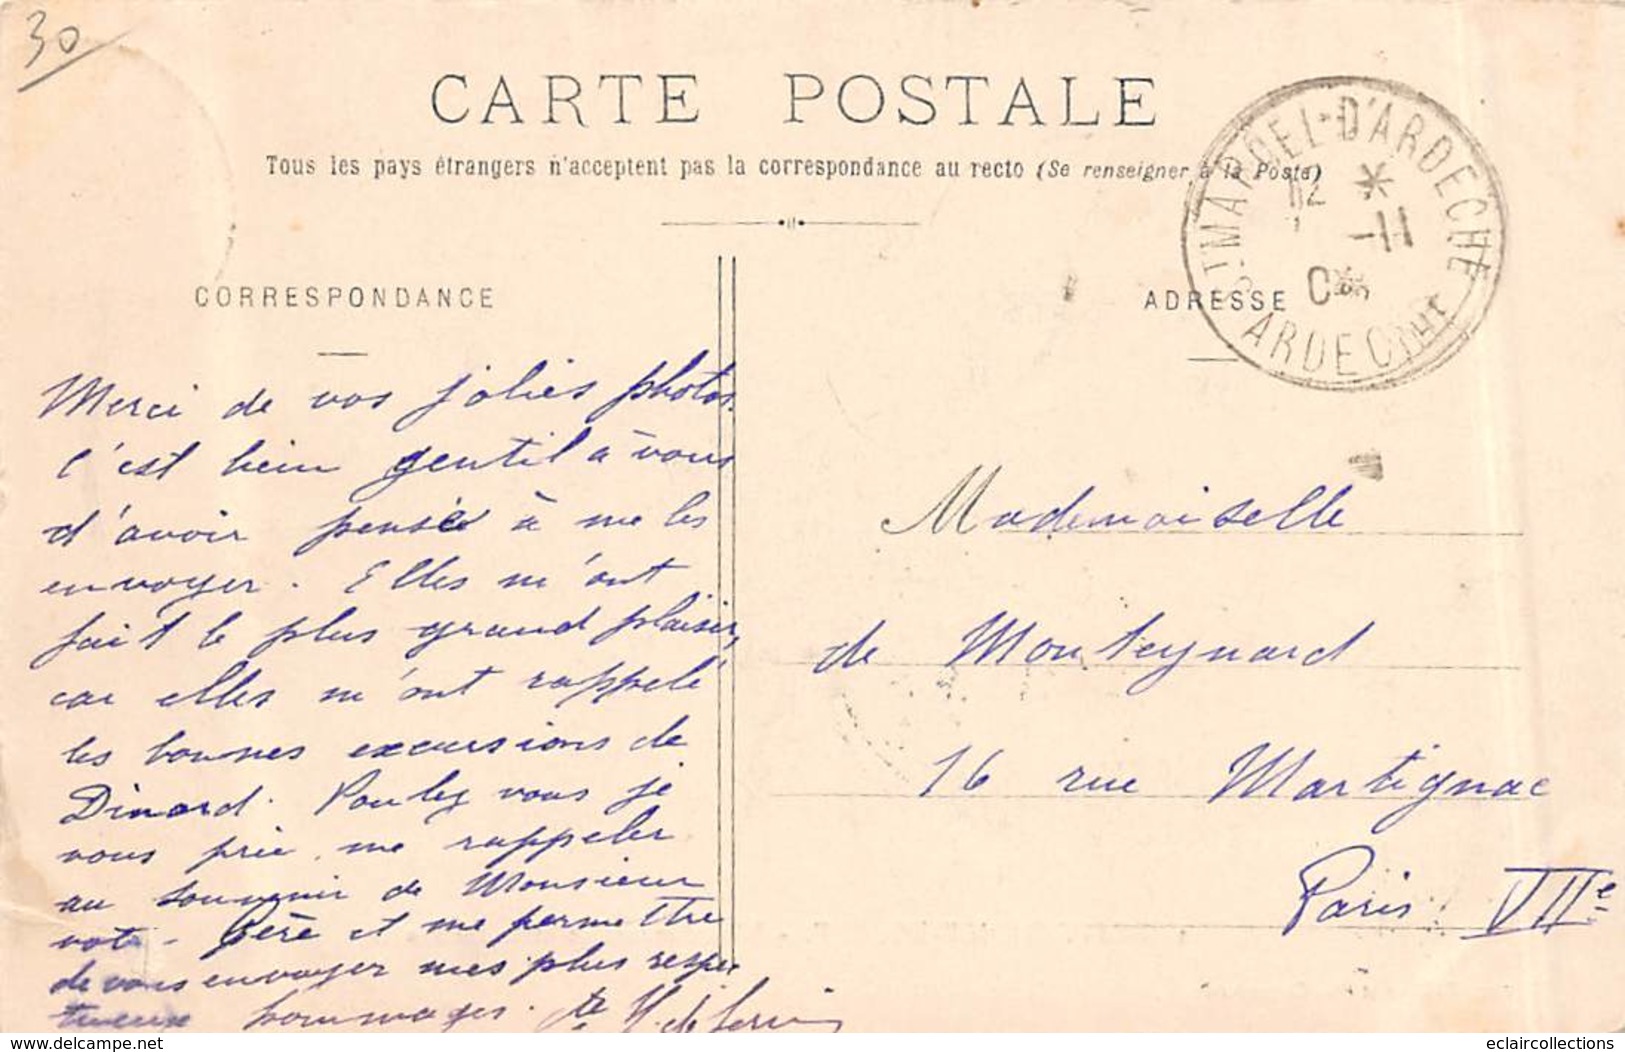 30
CARTE POSTALE
Tous les pays étrangers n'acceptent pas la correspondance au recto (Se renseigner à la Poste)
ST MARCEL-D'ARDECHE
12 *
-11
ARDECHE
CORRESPONDANCE
ADRESSE
Merci de vos jolies photos.
C'est bien gentil à vous
d'avoir pensé à me les
envoyer. Elles m'ont
fait le plus grand plaisir,
car elles m'ont rappelé
les bonnes excursions de
Dinard. Voulez vous je
vous prie, me rappeler
au souvenir de Monsieur
votre Père et me permettre
de vous envoyer mes plus respec
tueux hommages.
Mademoiselle
de Monteynard
16 rue Martignac
Paris VIIe
www.delcampe.net
eclaircollections